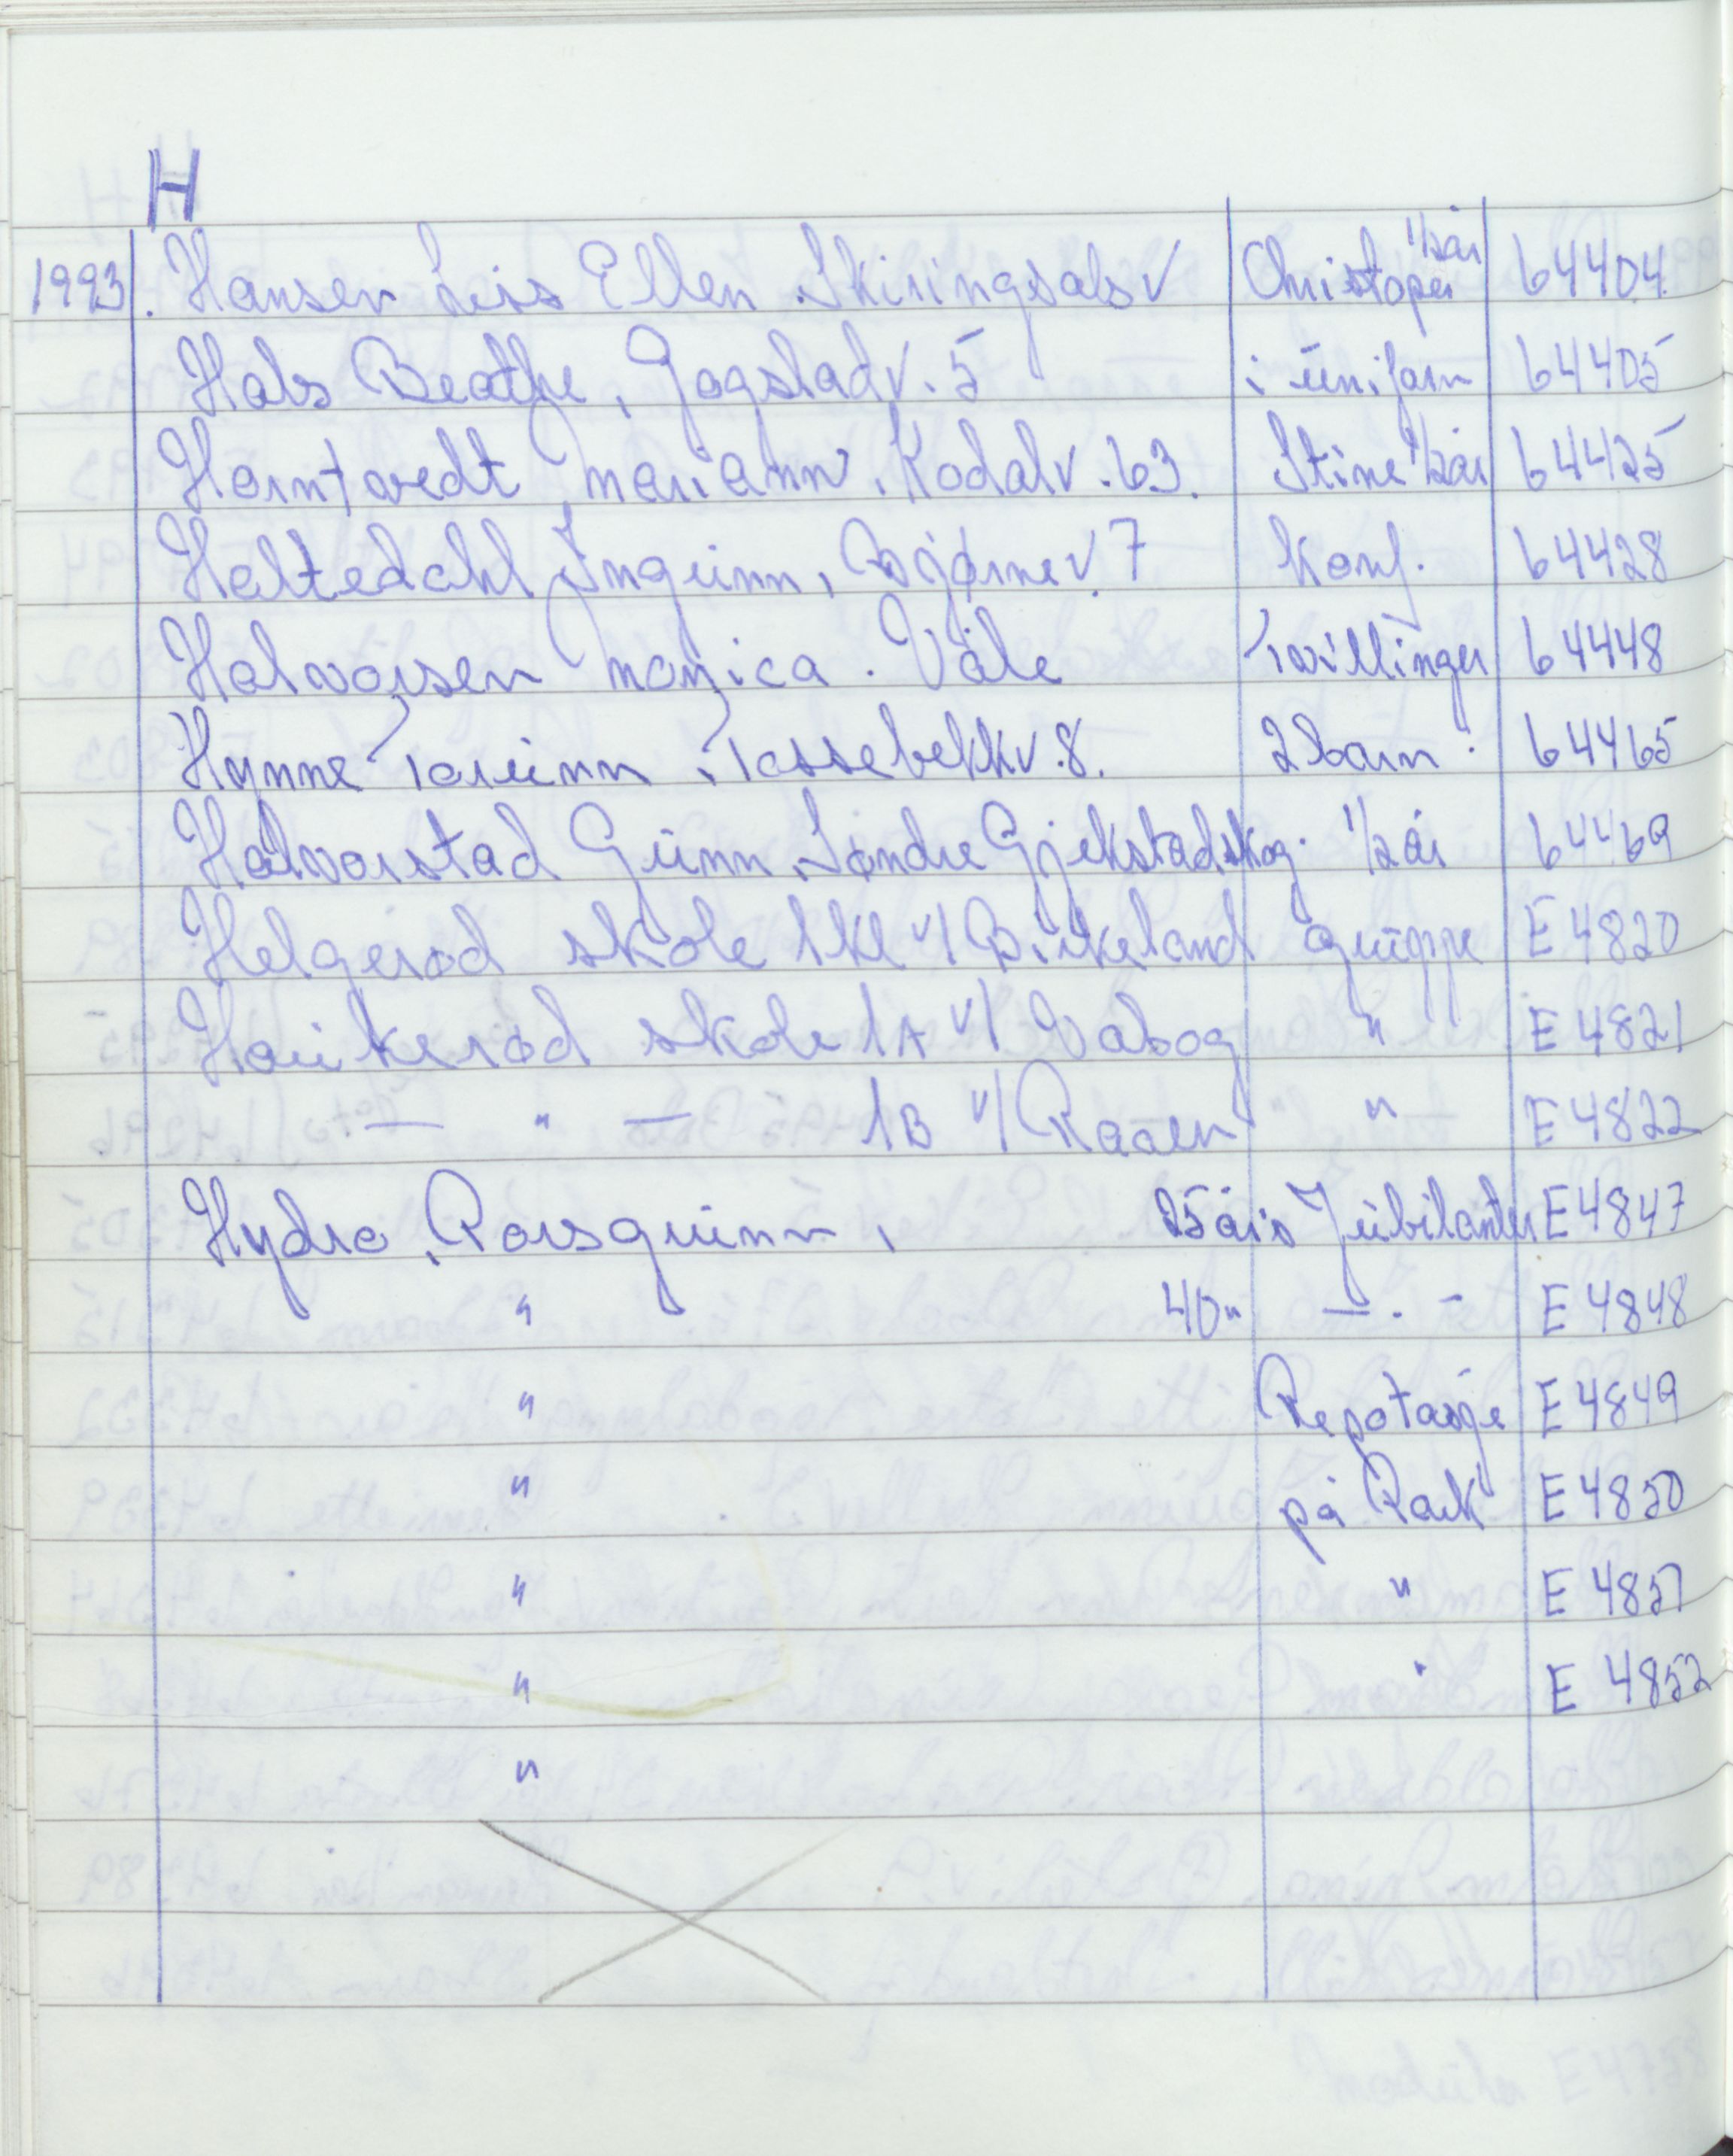 H
1993. Hansen Liss Ellen. Skiringsalsv Christoper 1/2 år 64404.
Hals Beathe, Gogstadv. 5 i üniform 64405
Horntvedt Mariann. Kodalv. 63. Stine 1/2 år 64425
Holtedahl Ingünn, Bjørnev. 7 Konf. 64428
Halvorsen Monica. Våle Tvillinger 64448
Hynne Torünn. Tassebekkv. 8. 2 barn. 64465
Halvorstad Günn, Søndre Gjekstadskog. 1/2 år 64469
Helgerød skole 1 kl v/ Birkeland grüppe E 4820
Haükerød skole 1A v/ Vabog " E 4821
— " — 1B v/ Raaen " E 4822
Hydro, Porsgrünn, 25 års Jübilanter E 4847
" 40 " — . - E 4848
" Repotasje E 4849
" på Park E 4850
" " E 4851
" " E 4852
"